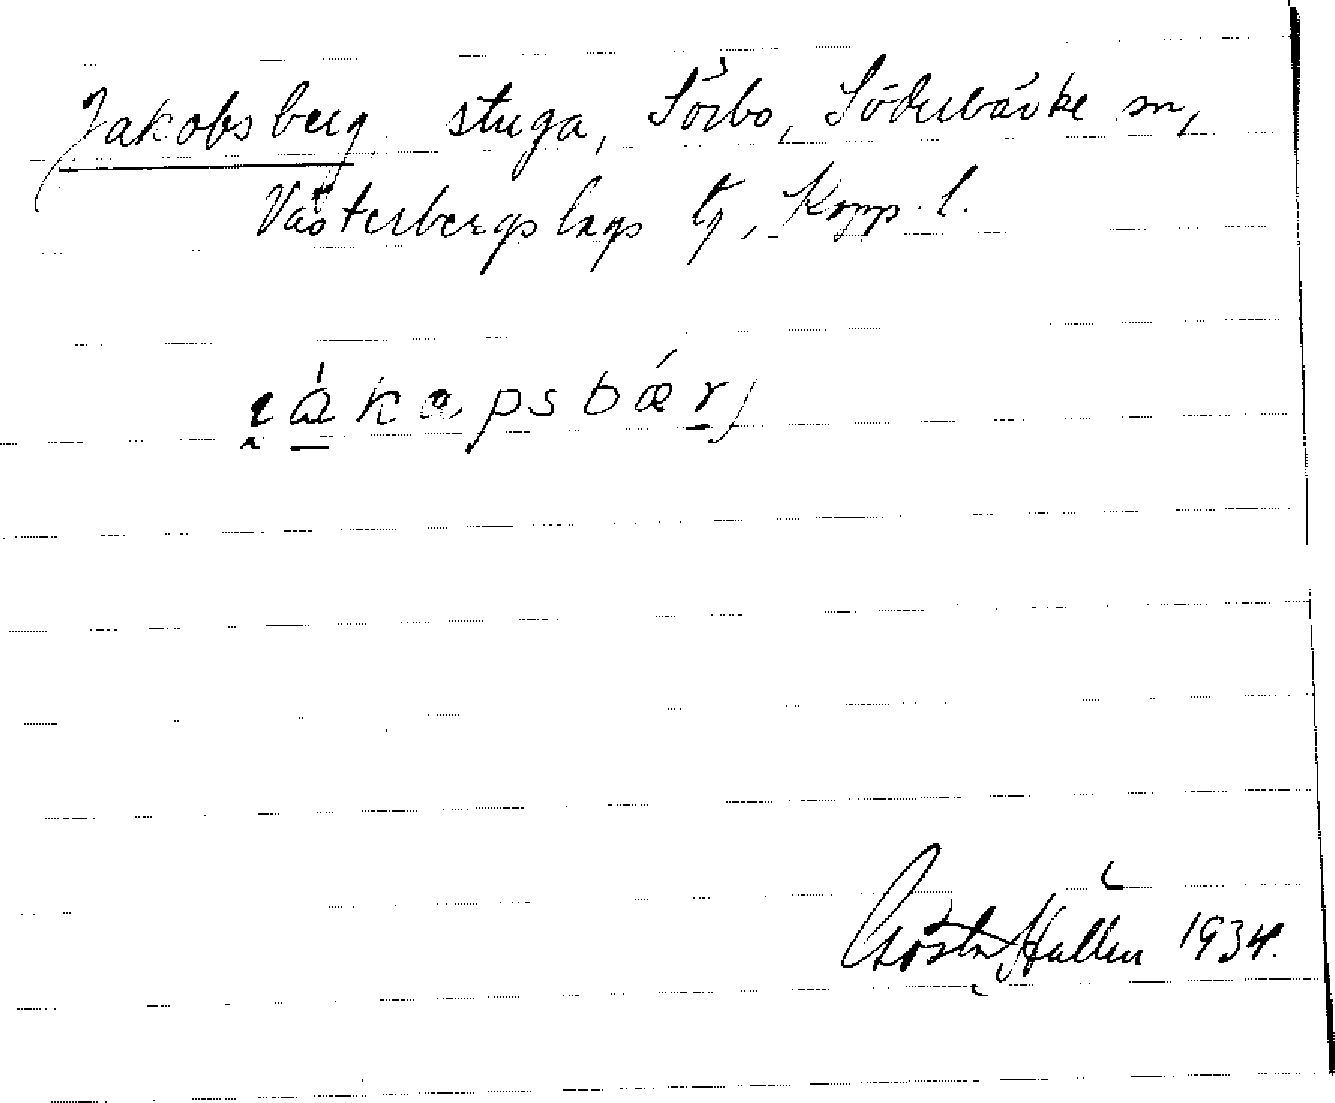 Jakobsberg stuga, Sörbo, Söderbärke sn,
Västerbergslags tg, Kopp. l.
ɪákapsbǽrj
Gösta Hallén 1934.